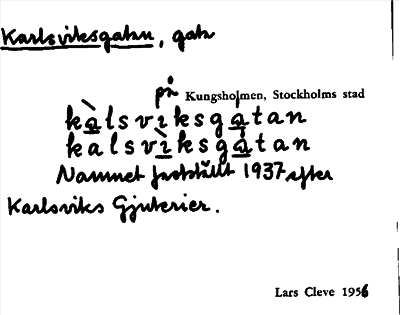 Karlsviksgatan, gata
på Kungsholmen, Stockholms stad
kàlsviksgatan
kalsvìksgátan
Namnet fastställt 1937 efter
Karlsviks Gjuterier.
Lars Cleve 1956